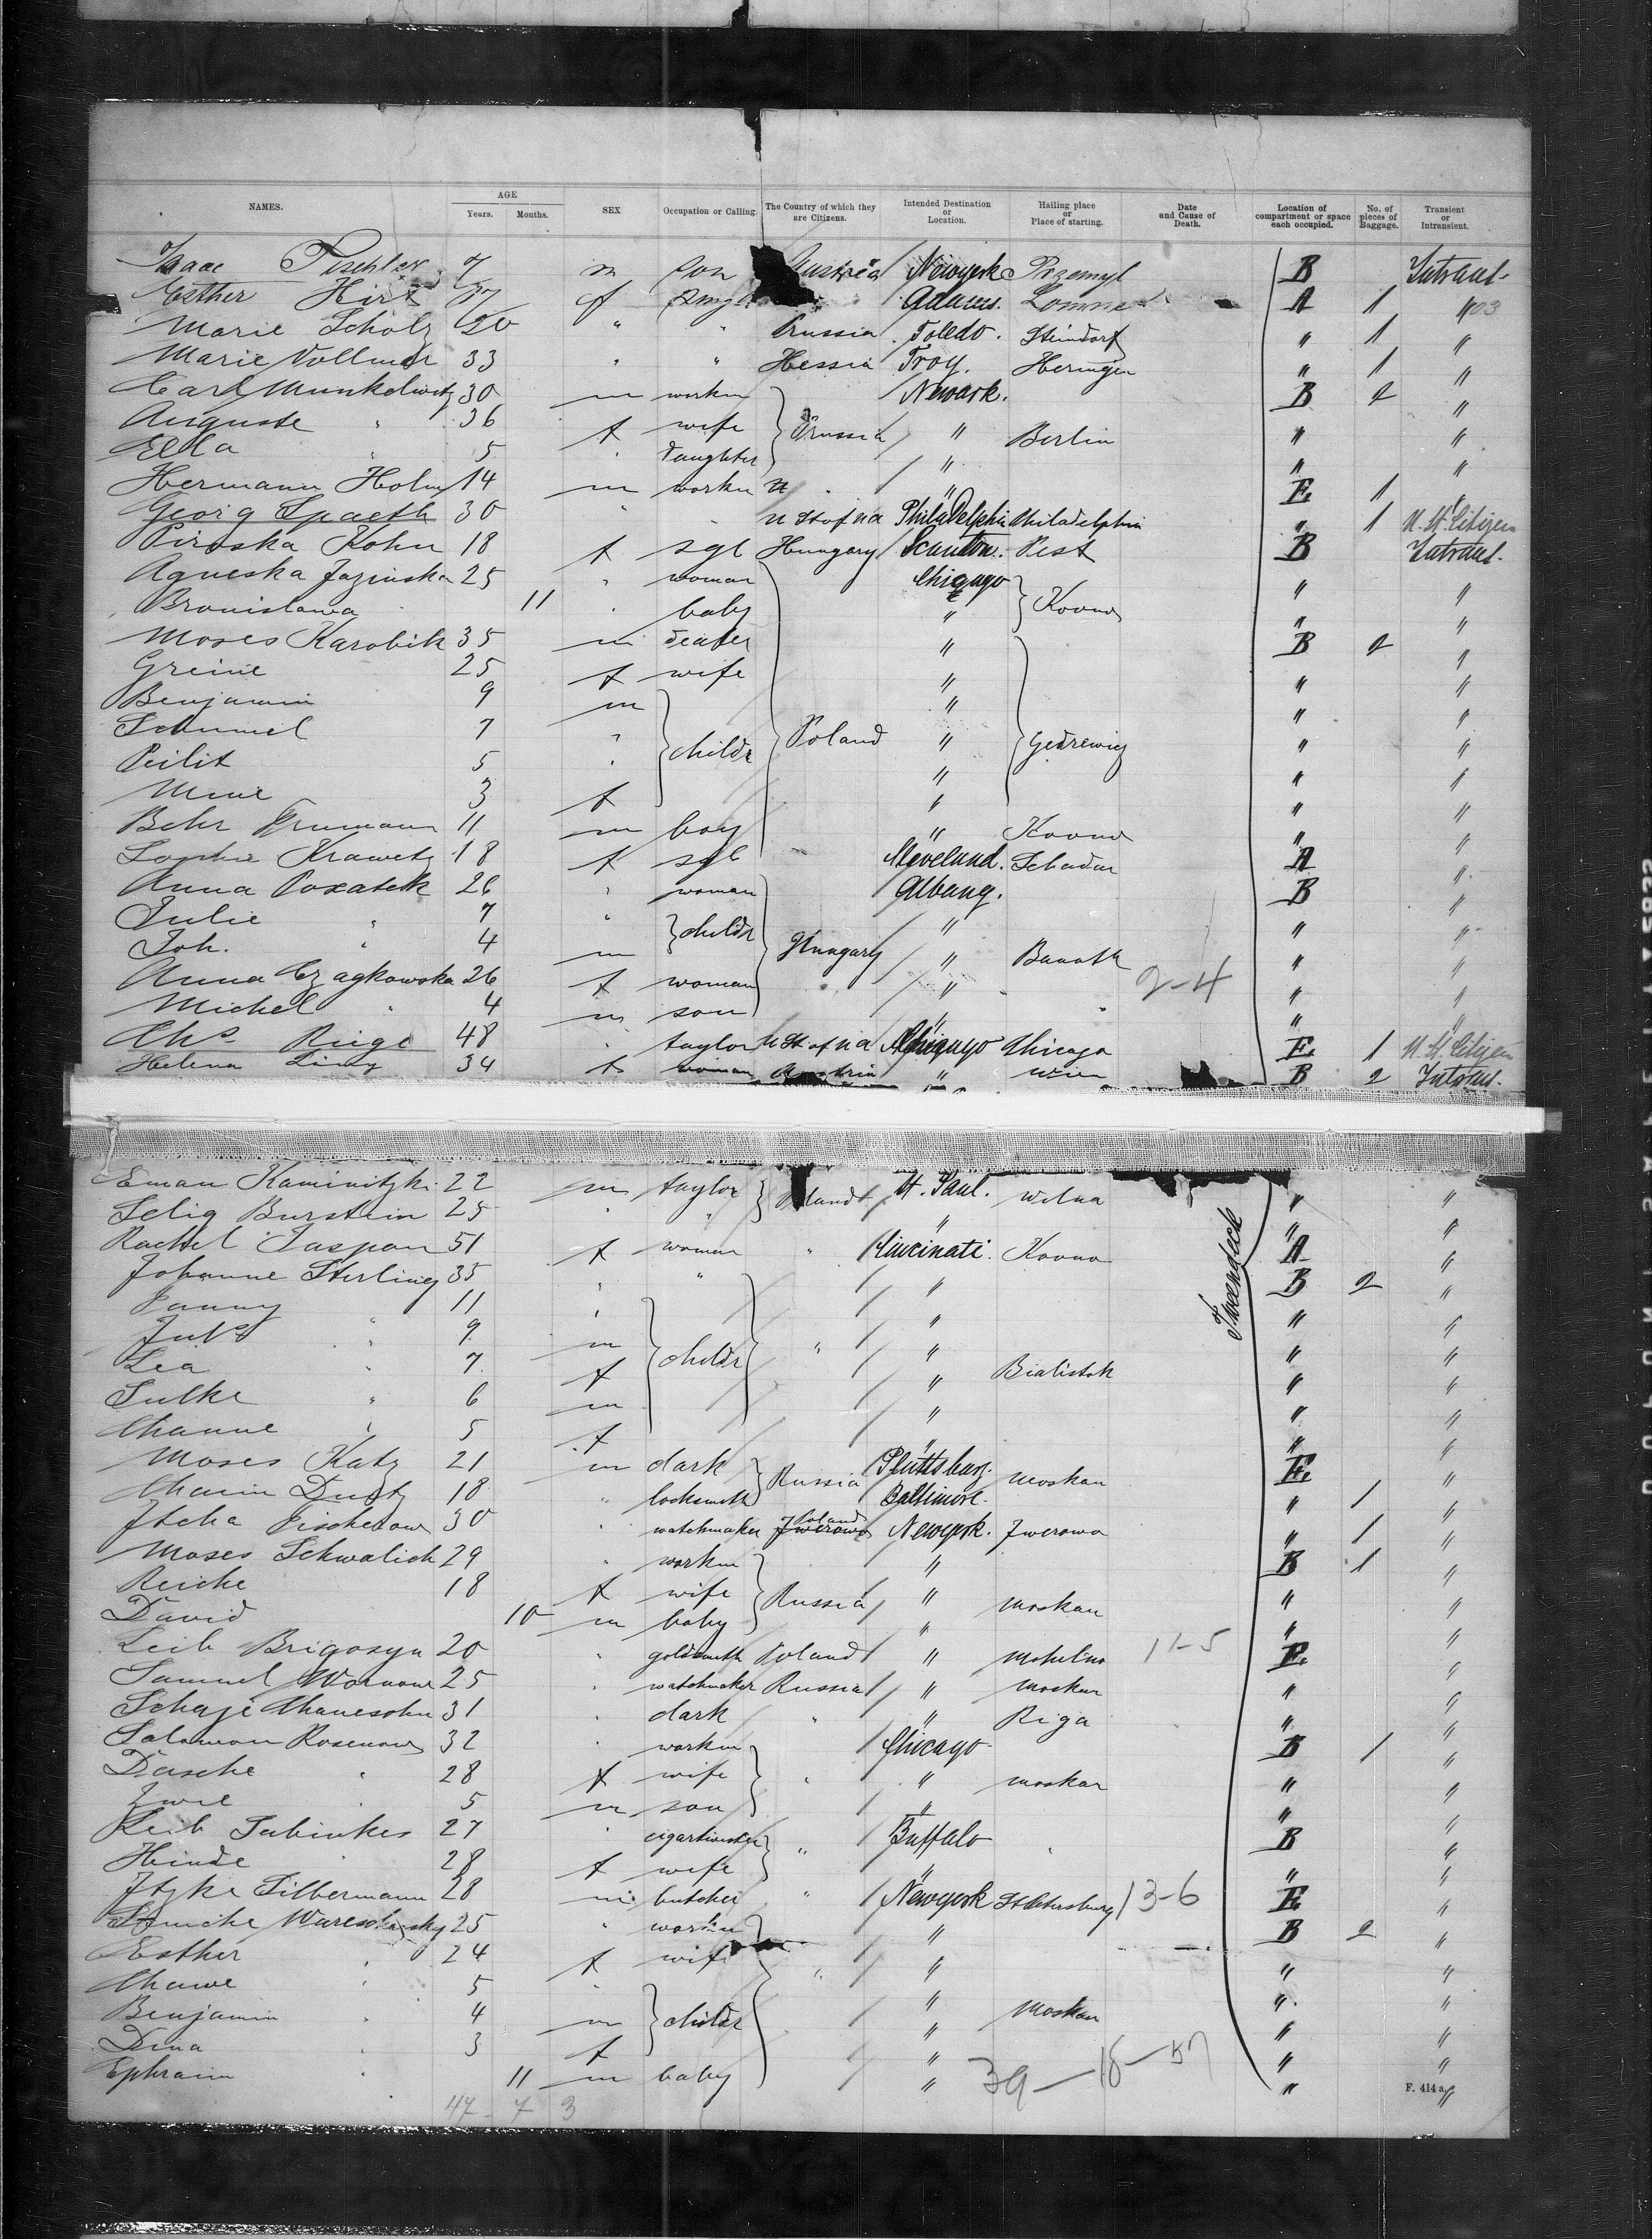 NAMES. AGE Years. Months. SEX Occupation or Calling. The Country of which they are Citizens. Intended Destination or Location. Hailing place or Place of starting. Date and Cause of Death. Location of compartment or space each occupied. No. of pieces of Baggage. Transient or Intransient.
Isaac 7 m son Austria Newyork Przemysl B Intrant.
Esther Hirt f A 1 "
Marie Scholz 20 " " Prussia Toledo. Steindorf " 1 "
Marie Vollmer 33 " " Hessia Troy. Heringen " 1 "
Carl 30 m worker Newark. B 2 "
Auguste " 36 f wife Prussia " Berlin " "
Ella " 5 " daughter " " "
Hermann Holm 14 m worker " " E. 1 "
Georg Spaeth 30 " U St of n a Philadelphia Philadelphia " 1 U. St. Citizen
Piroska Kohn 18 f sgl Hungary Scanton. Pest B Intrant.
Agneska Jazinska 25 " woman Chicago " "
Bronislawa 11 " baby " Kovno " "
Moses Karobik 35 m dealer " B 2 "
Greine 25 f wife " " "
Benjamin 9 m " " "
Schumel 7 " childr Poland " " "
Peilit 5 " " " "
Mine 3 f " " "
Behr 11 m boy " Kovno " "
Sophie Krawetz 18 f sgl Cleveland. Schadau A "
Anna 26 " woman Albany. B "
Julie " 7 " childr " " "
Joh. " 4 m Hungary " " "
Anna Czagkowska 26 f woman " 2-4 " "
Michel " 4 m son " " "
Chs. Ringe 48 " taylor U St of n a Chicago Chicago E. 1 U. St. Citizen
Helena 34 f woman Austria " Wien B 2 Intrant.
Eman Kaminitzki 22 m taylor Poland St. Paul. Wilna " "
Selig Burstein 25 " " " " "
Rachel Jaspan 51 f woman " Cincinati. Kovno A "
Johanne Sterling 35 " " " B 2 "
Fanny 11 " " " "
" 9 m childr " " " "
Lea " 7 f " Bialistok " "
Sulke " 6 m " " "
Channe " 5 f " " "
Moses Katz 21 m Russia Moskau E. "
18 " locksmith Baltimore. " 1 "
30 " watchmaker Poland Newyork. Zwerowo " 1 "
Moses Schwalich 29 " worker " B 1 "
Reiche 18 f wife Russia " Moskau " "
David 10 m baby " " "
Leib 20 " goldsmith Poland " 11-5 E. "
Samuel 25 " watchmaker Russia " Moskau " "
Schaje Chanesohn 31 " " " Riga " "
Salomon Rosenow 32 " worker Chicago B 1 "
Dasche " 28 f wife " " Moskau " "
5 m son " " "
Leib 27 " " Buffalo " B "
Hinde " 28 f wife " " "
Itzke Silbermann 28 m butcher " Newyork St Petersburg 13-6 E. "
25 " worker " B 2 "
Esther " 24 f wife " " " "
" 5 " " " "
Benjamin " 4 m childr " Moskau " "
Dina " 3 f " " "
Ephraim " 11 m baby " " "
47 - 7 3 F. 414 a.
Tweendeck